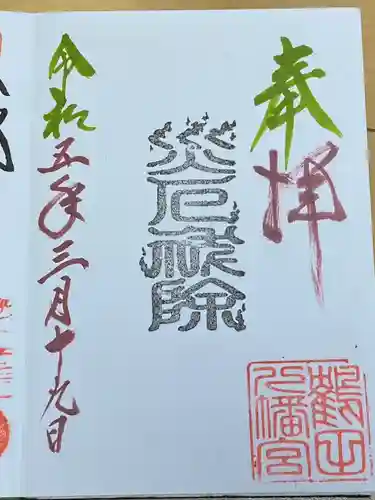 奉拝
災厄祓除
令和五年三月十九日
鶴
八幡宮